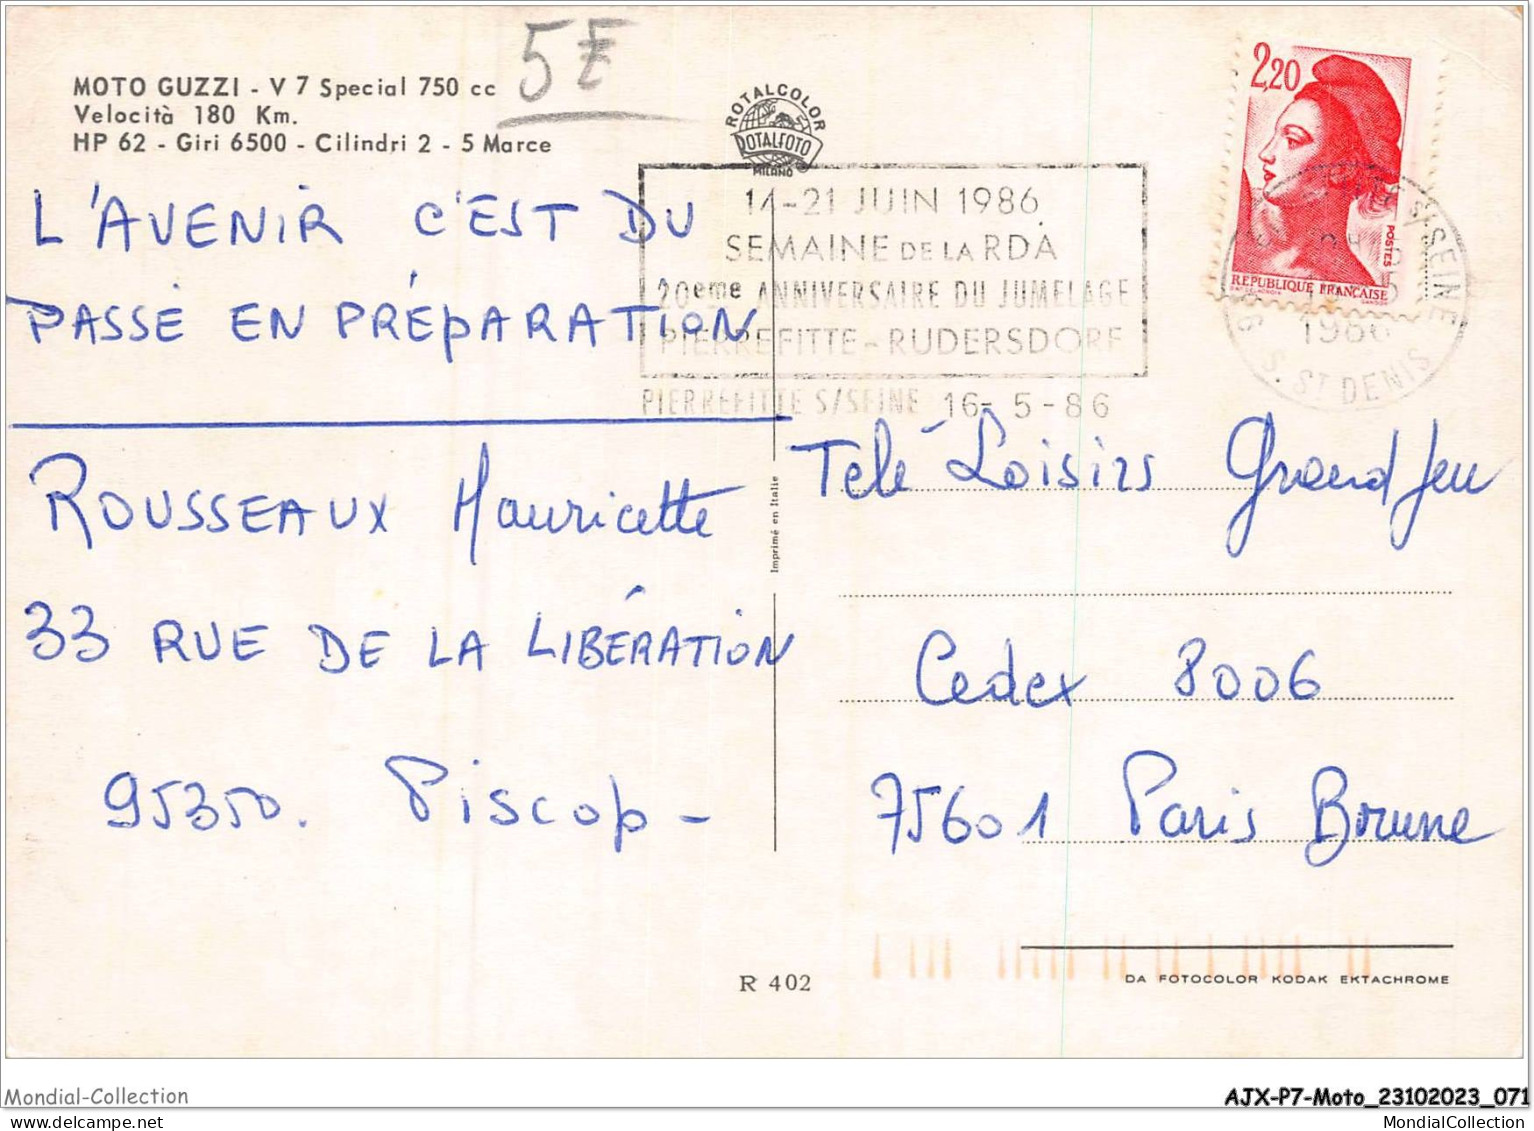 MOTO GUZZI - V 7 Special 750 cc
Velocità 180 Km.
HP 62 - Giri 6500 - Cilindri 2 - 5 Marce
ROTALCOLOR
ROTALFOTO
MILANO
2,20
POSTES
REPUBLIQUE FRANCAISE
14-21 JUIN 1986
SEMAINE DE LA RDA
20eme ANNIVERSAIRE DU JUMELAGE
PIERREFITTE - RUDERSDORF
PIERREFITTE S/SEINE 16- 5 - 86
S/SEINE
1986
S. ST DENIS
L'AVENIR C'EST DU
PASSÉ EN PRÉPARATION
ROUSSEAUX Mauricette
33 RUE DE LA LIBÉRATION
95350. Piscop -
Imprimé en Italie
Télé Loisirs Grand Jeu
Cedex 8006
75601 Paris Brune
R 402
DA FOTOCOLOR KODAK EKTACHROME
Mondial-Collection
AJX-P7-Moto_23102023_071
MondialCollection